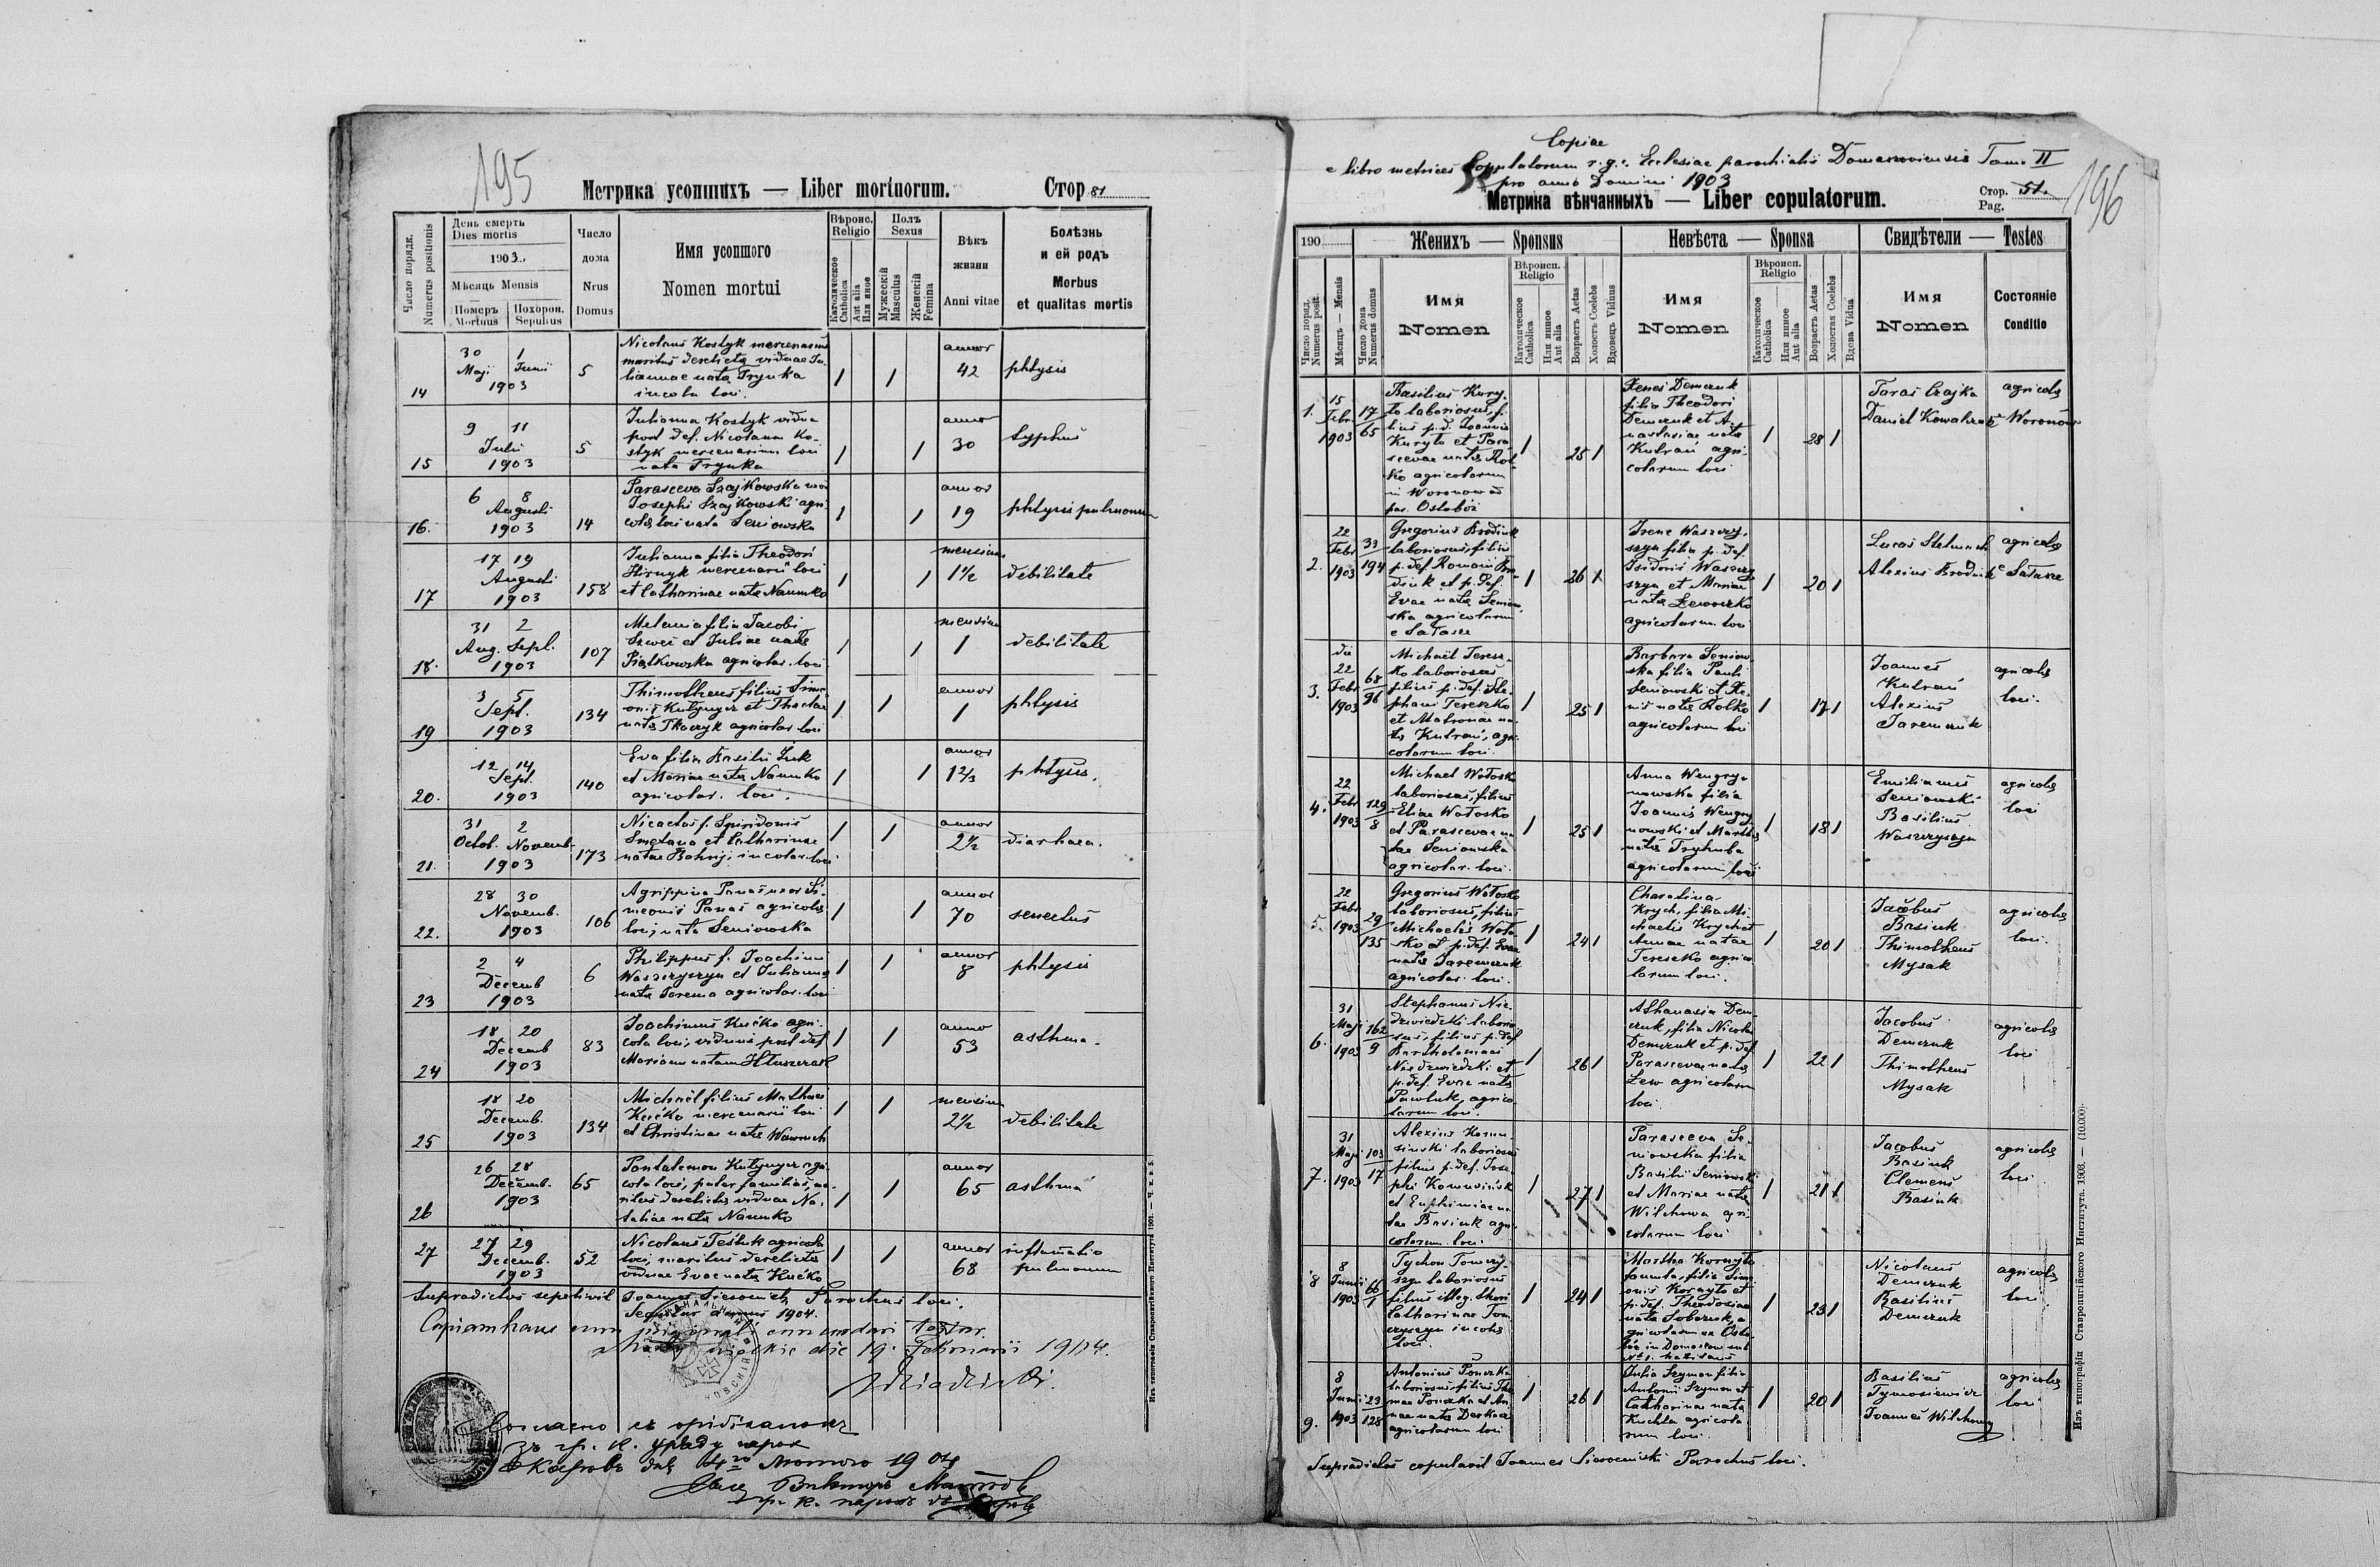 195
Метрика усопшихъ — Liber mortuorum.
Стор 81
Число порядк.
Numerus positionis
День смерть
Dies mortis
1903.
Мѣсяць Mensis
Померъ
Mortuus
Похорон.
Sepultus
Число
дома
Nrus
Domus
Имя усопшого
Nomen mortui
Вѣроис.
Religio
Католическое
Catholica
Или иное
Aut alia
Полъ
Sexus
Мужескій
Masculus
Женскій
Femina
Вѣкъ
жизни
Anni vitae
Болѣзнь
и ей родъ
Morbus
et qualitas mortis
14
30 1
Maji Junii
1903
5
Nicolaus Kostyk mercenarius
maritus derelictae viduae Ju-
liannae natae Frynka
incola loci.
1 1
annor
42
phtysis
15
9 11
Julii
1903
5
Julianna Kostyk vidua
post def. Nicolaum Ko-
styk mercenarium loci
nata Frynka
1 1
annor
30
typhus
16.
6 8
Augusti
1903
14
Parasceva Szajkowska uxor
Josephi Szajkowski agri-
colae loci nata Seniowska
1 1
annor
19
phtysis pulmonum
17
17 19
Augusti
1903
158
Julianna filia Theodori
Hirnyk mercenarii loci
et Catharinae natae Naumko
1 1
mensium
1½
debilitate
18.
31 2
Aug. Sept.
1903
107
Melania filia Jacobi
Szwec et Juliae natae
Piątkowska agricolar. loci
1 1
mensium
1
debilitate
19
3 5
Sept.
1903
134
Thimotheus filius Sime-
onis Kutynycz et Theclae
natae Tkaczyk agricolar. loci
1 1
annor
1
phtysis
20.
12 14
Sept.
1903
140
Eva filia Basilii Żuk
et Mariae natae Naumko
agricolar. loci.
1 1
annor
1⅔
phtysis.
21.
31 2
Octob. Novemb.
1903
173
Nicaetas f. Spiridonis
Smetana et Catharinae
natae Bahrij, incolar. loci
1 1
annor
2½
diarhaea.
22.
28 30
Novemb.
1903
106
Agrippina Panas uxor Si-
meonis Panas agricolae
loci, nata Seniowska
1 1
annor
70
senectus
23
2 4
Decemb
1903
6
Philippus f. Joachimi
Waszczyszyn et Juliannae
natae Jarema agricolar. loci
1 1
annor
8
phtysis
24
18 20
Decemb
1903
83
Joachimus Kućko agri-
cola loci, viduus post def
Mariam natam Hluszczak
1 1
annor
53
asthma.
25
18 20
Decemb.
1903
134
Michaël filius Mathaei
Kućko mercenarii loci
et Christinae natae Wawruch
1 1
mensium
2½
debilitate
26
26 28
Decemb.
1903
65
Pantalemon Kutynycz agri-
cola loci, pater familias, ma-
ritus derelictae viduae Na-
taliae natae Naumko
1 1
annor
65
asthma
27
27 29
Decemb.
1903
52
Nicolaus Teśluk agricola
loci, maritus derelictae
viduae Evae natae Kućko
1 1
annor
68
inflamatio
pulmonum
Supradictos sepelivit Joannes Parochus loci.
Sequitur annus 1904.
Copiam hanc cum originali concordari testor.
die 19. Februarii 1904.
Согласно съ оригіналомъ
Зъ гр. к. уряду парох
Лютого 1904
Викторъ
гр. к. парохъ
Изъ типографіи Ставропигійского Института 1901.
196
Copiae
e libro metrices Copulatorum r. g. c. Ecclesiae parochialis Domaszoviensis Tom. II
pro anno Domini 1903
Метрика вѣнчанныхъ — Liber copulatorum.
Стор.
Pag. 51.
190
Число поряд.
Numerus posit.
Мѣсяць — Mensis
Число дома
Numerus domus
Женихъ — Sponsus
Имя
Nomen
Вѣроисп.
Religio
Католическое
Catholica
Или инное
Aut alia
Возрастъ Aetas
Холостъ Coelebs
Вдовецъ Viduus
Невѣста — Sponsa
Имя
Nomen
Вѣроисп.
Religio
Католическое
Catholica
Или инное
Aut alia
Возрастъ Aetas
Холостая Coelebs
Вдова Vidua
Свидѣтели — Testes
Имя
Nomen
Состояніе
Conditio
1.
15
Febr.
1903
17
65
Basilius Kury-
ło laboriosus, fi-
lius p. d. Joannis
Kuryło et Para-
scevae natae Rol-
ko agricolarum
in Woronow ad
par. Ostobóż
1 25 1
Xenes Demczuk
filia Theodori
Demczuk et A-
nastasiae nata
Kutrań agri-
colarum loci
1 28 1
Taras Czajka
Daniel Kowalczuk
agricolae
e Woronów
2.
22
Febr
1903
33
194
Gregorius Brodiuk
laboriosus, filius
p. def Romani Bro-
diuk et p. def.
Evae natae Seniow-
ska agricolarum
e Sałasze
1 26 1
Irene Waszczy-
szyn filia p. def.
Isidoris Waszczy-
szyn et Mariae
natae Lewoszko
agricolarum loci
1 20 1
Lucas Stelmach
Alexius Brodiuk
agricolae
e Sałasze
3.
die
22
Febr
1903
68
96
Michaël Teresz-
ko laboriosus
filius p. def. Ste-
phani Tereszko
et Matronae na-
tae Kutrań, agri-
colarum loci.
1 25 1
Barbara Seniow-
ska filia Pauli
Seniowski et Xe-
nis natae Rolko
agricolarum loci
1 17 1
Joannes
Kutrań
Alexius
Jaremczuk
agricolae
loci.
4.
22
Febr
1903
129
8
Michael Wołosko
laboriosus, filius
Eliae Wołosko
et Parascevae na-
tae Seniowska
agricolar. loci.
1 25 1
Anna Wengry-
nowska filia
Joannis Wengry-
nowski et Marthae
natae Tryhuba
agricolarum loci
1 18 1
Emilianus
Seniowski
Basilius
Waszczyszyn
agricolae
loci
5.
22
Febr
1903
29
135
Gregorius Wołosko
laboriosus, filius
Michaelis Woło-
sko et p. def. Evae
natae Jaremczuk
agricolar. loci.
1 24 1
Charatina
Krych, filia Mi-
chaelis Krych et
Annae natae
Tereszko agrico-
larum loci.
1 20 1
Jacobus
Basiuk
Thimotheus
Mysak
agricolae
loci.
6.
31
Maji
1903
162
9
Stephanus Nie-
dzwiedzki laborio-
sus, filius p. def
Bartholomaei
Niedzwiedzki et
p. def. Evae natae
Pawluk, agrico-
larum loci.
1 26 1
Athanasia Dem-
czuk, filia Nicolai
Demczuk et p. def.
Parascevae natae
Lew agricolarum
loci.
1 22 1
Jacobus
Demczuk
Thimotheus
Mysak
agricolae
loci
7.
31
Maji
1903
103
17
Alexius Komu-
sinski laboriosus
filius p. def. Jose-
phi Komusiński
et Euphimiae na-
tae Basiuk agri-
colarum loci.
1 27 1
Parasceva Se-
niowska filia
Basilii Seniowski
et Mariae natae
Wilchowa agri-
colarum loci
1 21 1
Jacobus
Basiuk
Clemens
Basiuk
agricolae
loci
8
8
Junii
1903
66
1
Tychon Tomczy-
szyn laboriosus
filius illeg. thori
Catharinae Tom-
czyszyn incolae
loci.
1 24 1
Martha Kornyło
famula, filia Sime-
onis Kornyło et
p. def. Theodosiae
natae Sobczuk, a-
gricolarum ex Osto-
bóż in Domaszow sub
Nr 1. habitans
1 23 1
Nicolaus
Demczuk
Basilius
Demczuk
agricolae
loci
9.
8
Junii
1903
23
128
Antonius Ponczka
laboriosus, filius Tho-
mae Ponczka et An-
nae natae Derkacz
agricolarum loci
1 26 1
Julia Szymon filia
Antonii Szymon et
Catharinae nata
Kuchta agricola-
rum loci.
1 20 1
Basilius
Tymosiewicz
Joannes Wilchowy
agricolae
loci
Supradictos copulavit Joannes Parochus loci.
Изъ типографіи Ставропигійского Института. 1903. — (10.000).